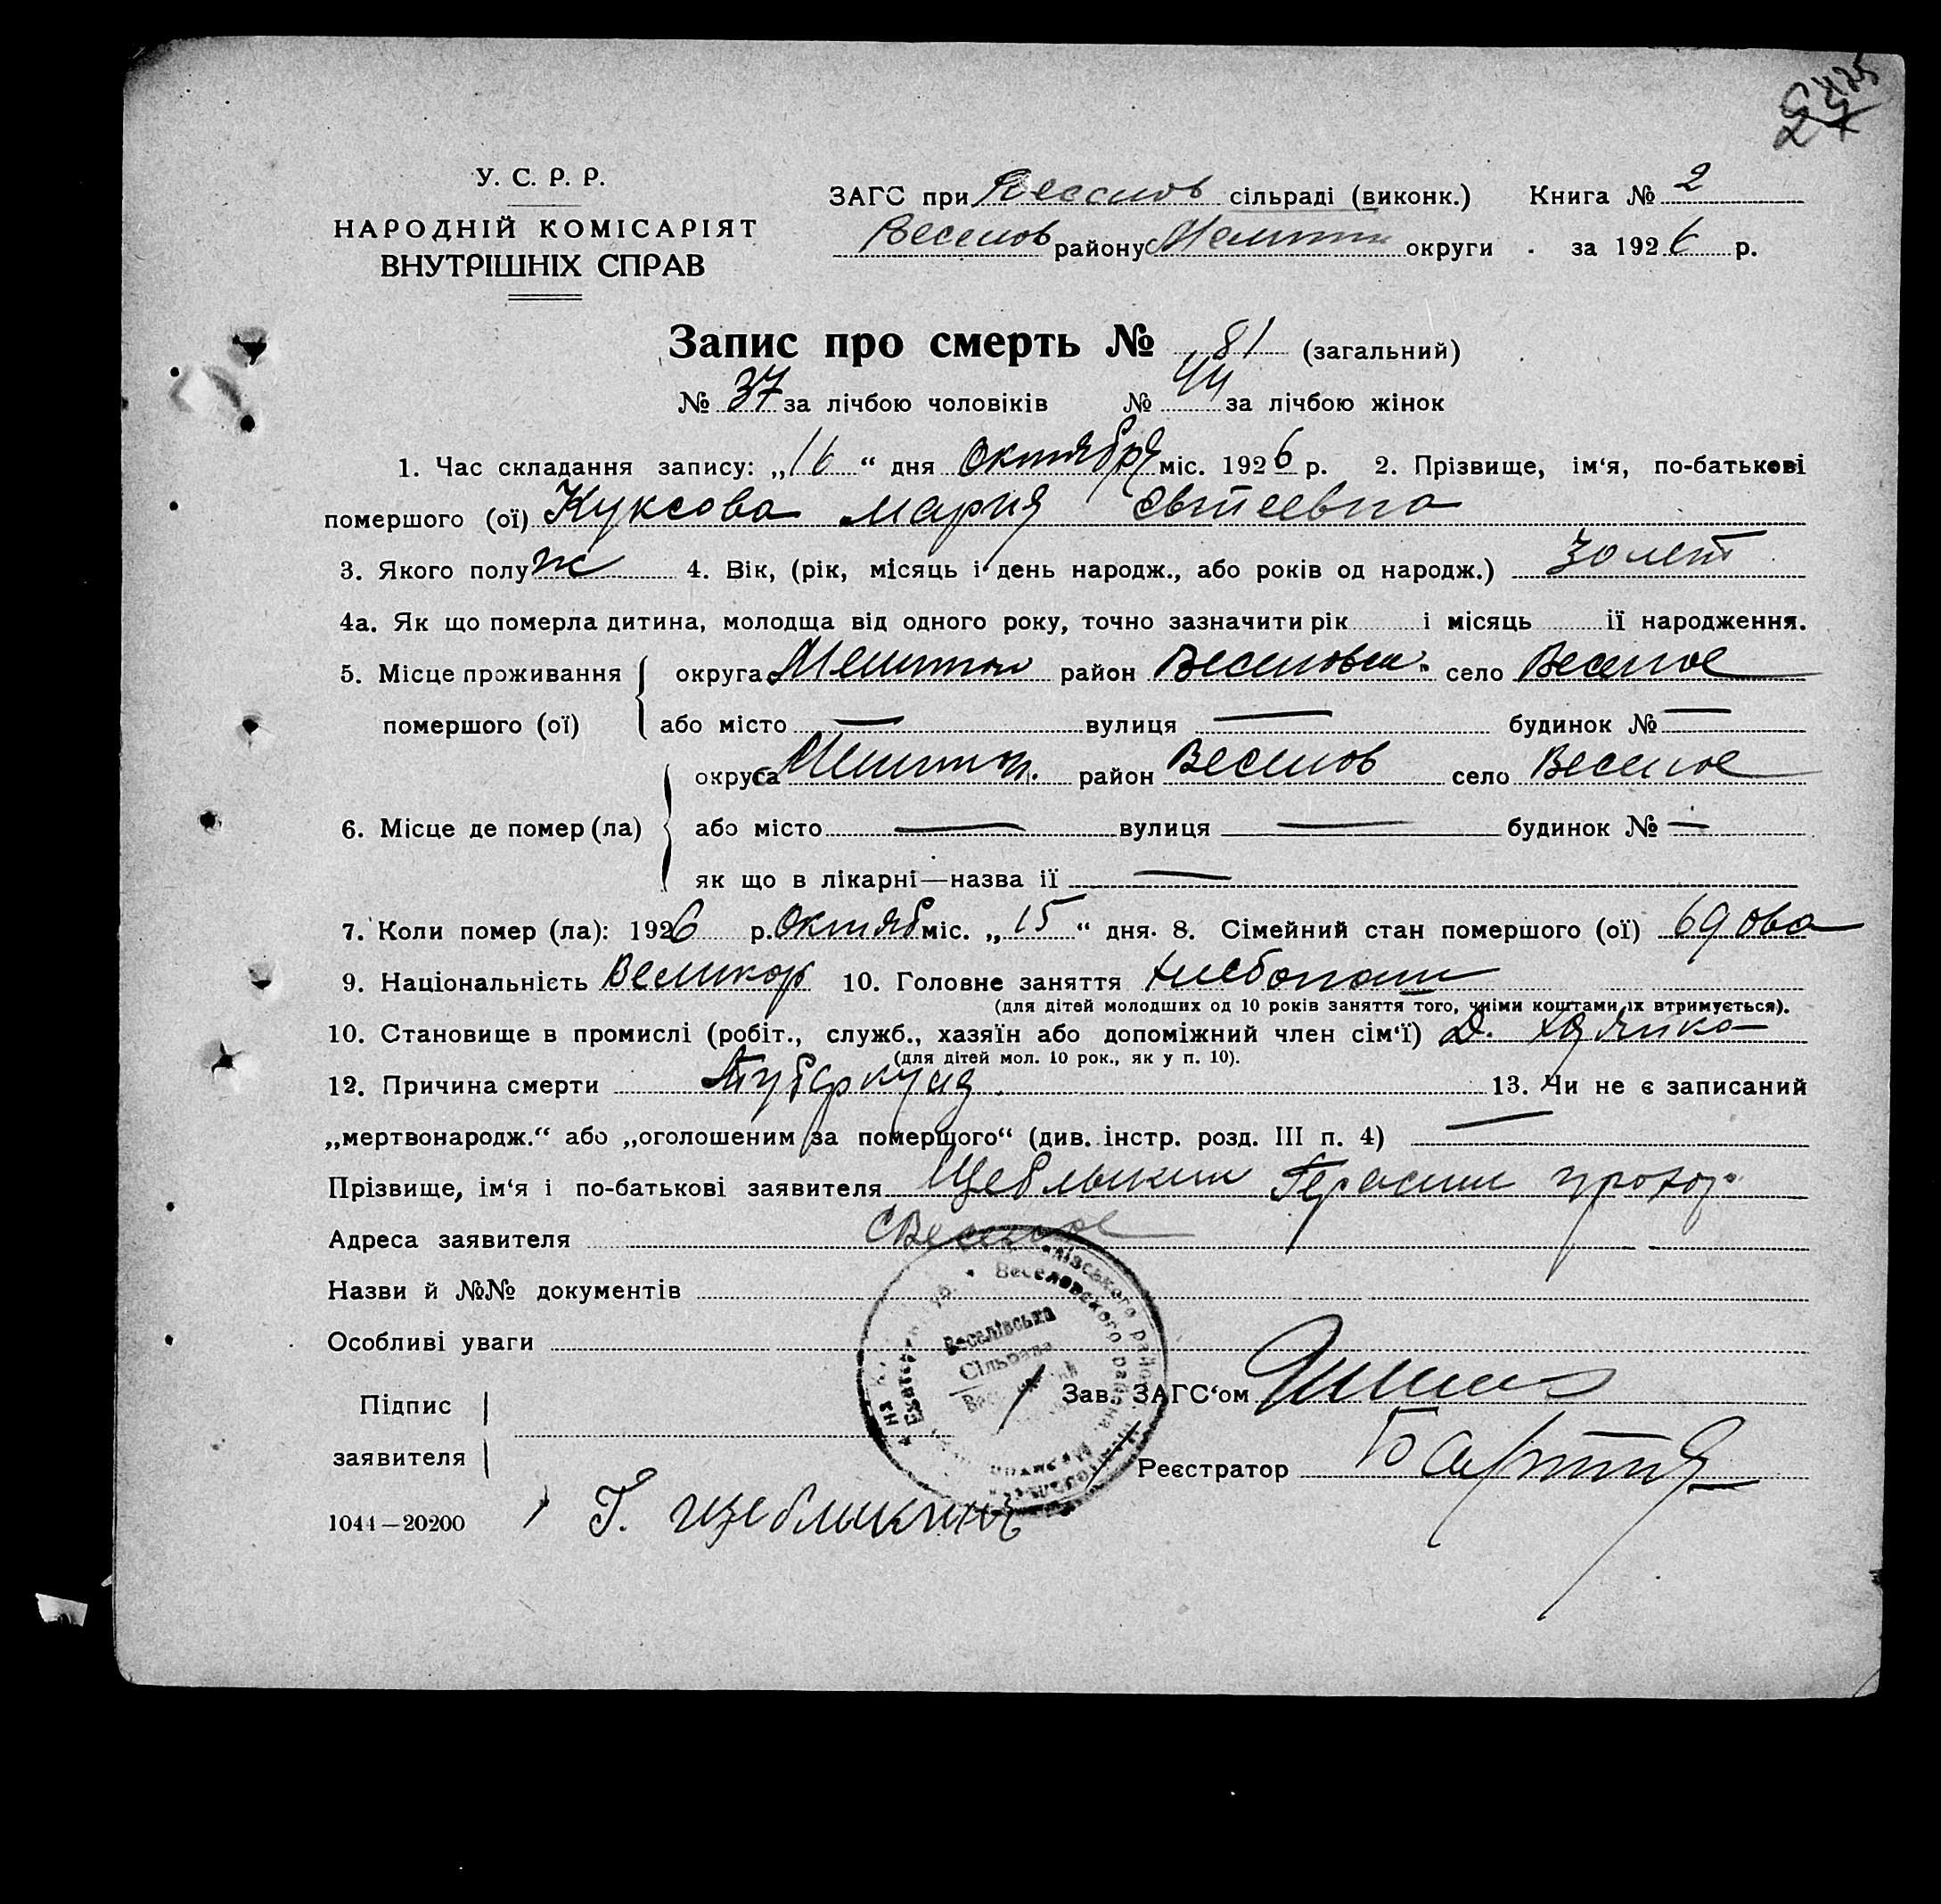 У. С. Р. Р.
НАРОДНІЙ КОМІСАРІЯТ
ВНУТРІШНІХ СПРАВ
ЗАГС при Веселов сільраді (виконк.) Книга № 2
Веселов району Мелит округи за 1926 р.
Запис про смерть № 81 (загальний)
№ 37 за лічбою чоловіків № 44 за лічбою жінок
1. Час складання запису: „16“ дня Октября міс. 1926 р. 2. Прізвище, ім‘я, по-батькові
помершого (ої) Куксова Мария Евтеевна
3. Якого полу ж 4. Вік, (рік, місяць і день народж., або років од народж.) 30 лет
4а. Як що померла дитина, молодща від одного року, точно зазначити рік і місяць її народження.
5. Місце проживання округа Мелитоп район Веселовск. село Веселое
помершого (ої) або місто — вулиця — будинок № —
округа Мелитоп. район Веселов село Веселое
6. Місце де помер (ла) або місто — вулиця — будинок № —
як що в лікарні—назва її —
7. Коли помер (ла): 1926 р. Октяб міс. „15“ дня. 8. Сімейний стан помершого (ої) вдова
9. Національність Великор 10. Головне заняття хлебопаш
(для дітей молодших од 10 років заняття того, чиїми коштами їх втримується).
10. Становище в промислі (робіт., служб., хазяїн або допоміжний член сім‘ї) Д. хозяйка
(для дітей мол. 10 рок., як у п. 10).
12. Причина смерти Туберкулез 13. Чи не є записаний
„мертвонародж.“ або „оголошеним за помершого“ (див. інстр. розд. III п. 4) —
Прізвище, ім‘я і по-батькові заявителя Щеблыкин Герасим Прохор.
Адреса заявителя с Веселое
Назви й №№ документів
Особливі уваги
Веселівська
Сільрада
Підпис
заявителя
Зав. ЗАГС‘ом
Реєстратор
1044—20200
Г. Щеблыкинъ